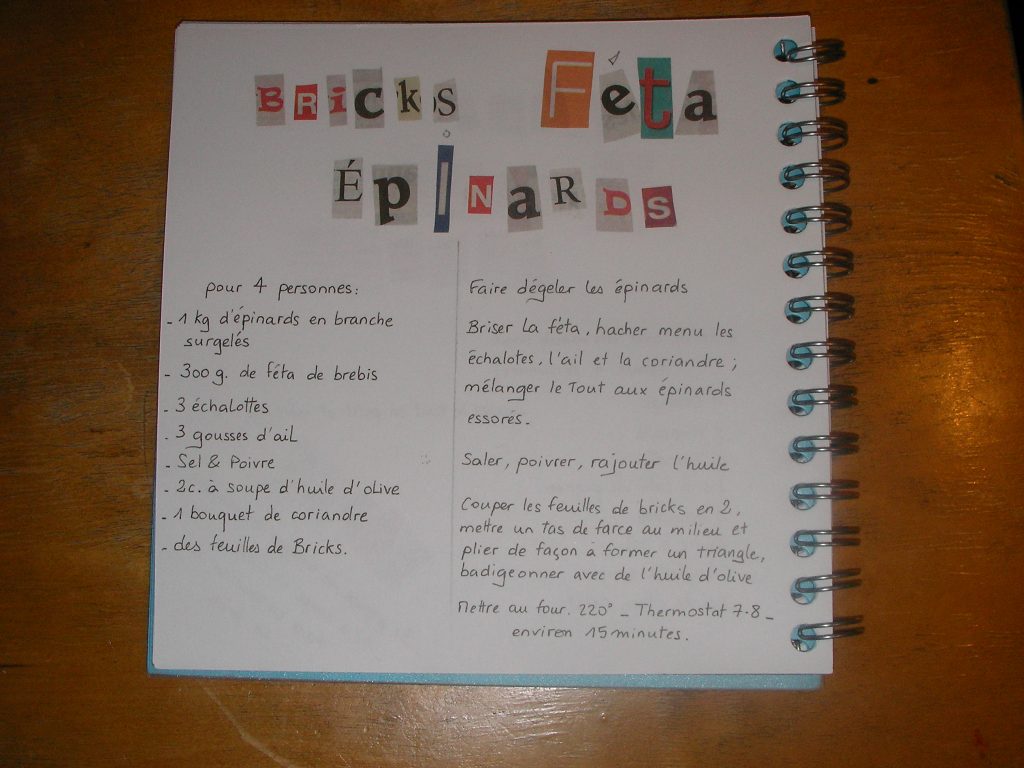 BRicKs Féta
ÉpiNaRDS
pour 4 personnes:
- 1 kg d'épinards en branche
surgelés
- 300 g. de féta de brebis
- 3 échalottes
- 3 gousses d'ail
- Sel & Poivre
- 2c. à soupe d'huile d'olive
- 1 bouquet de coriandre
- des feuilles de Bricks.
Faire dégeler les épinards
Briser la féta, hacher menu les
échalotes, l'ail et la coriandre ;
mélanger le Tout aux épinards
essorés.
Saler, poivrer, rajouter l'huile
Couper les feuilles de bricks en 2,
mettre un tas de farce au milieu et
plier de façon à former un triangle,
badigeonner avec de l'huile d'olive
Mettre au four. 220° - Thermostat 7-8 -
environ 15 minutes.